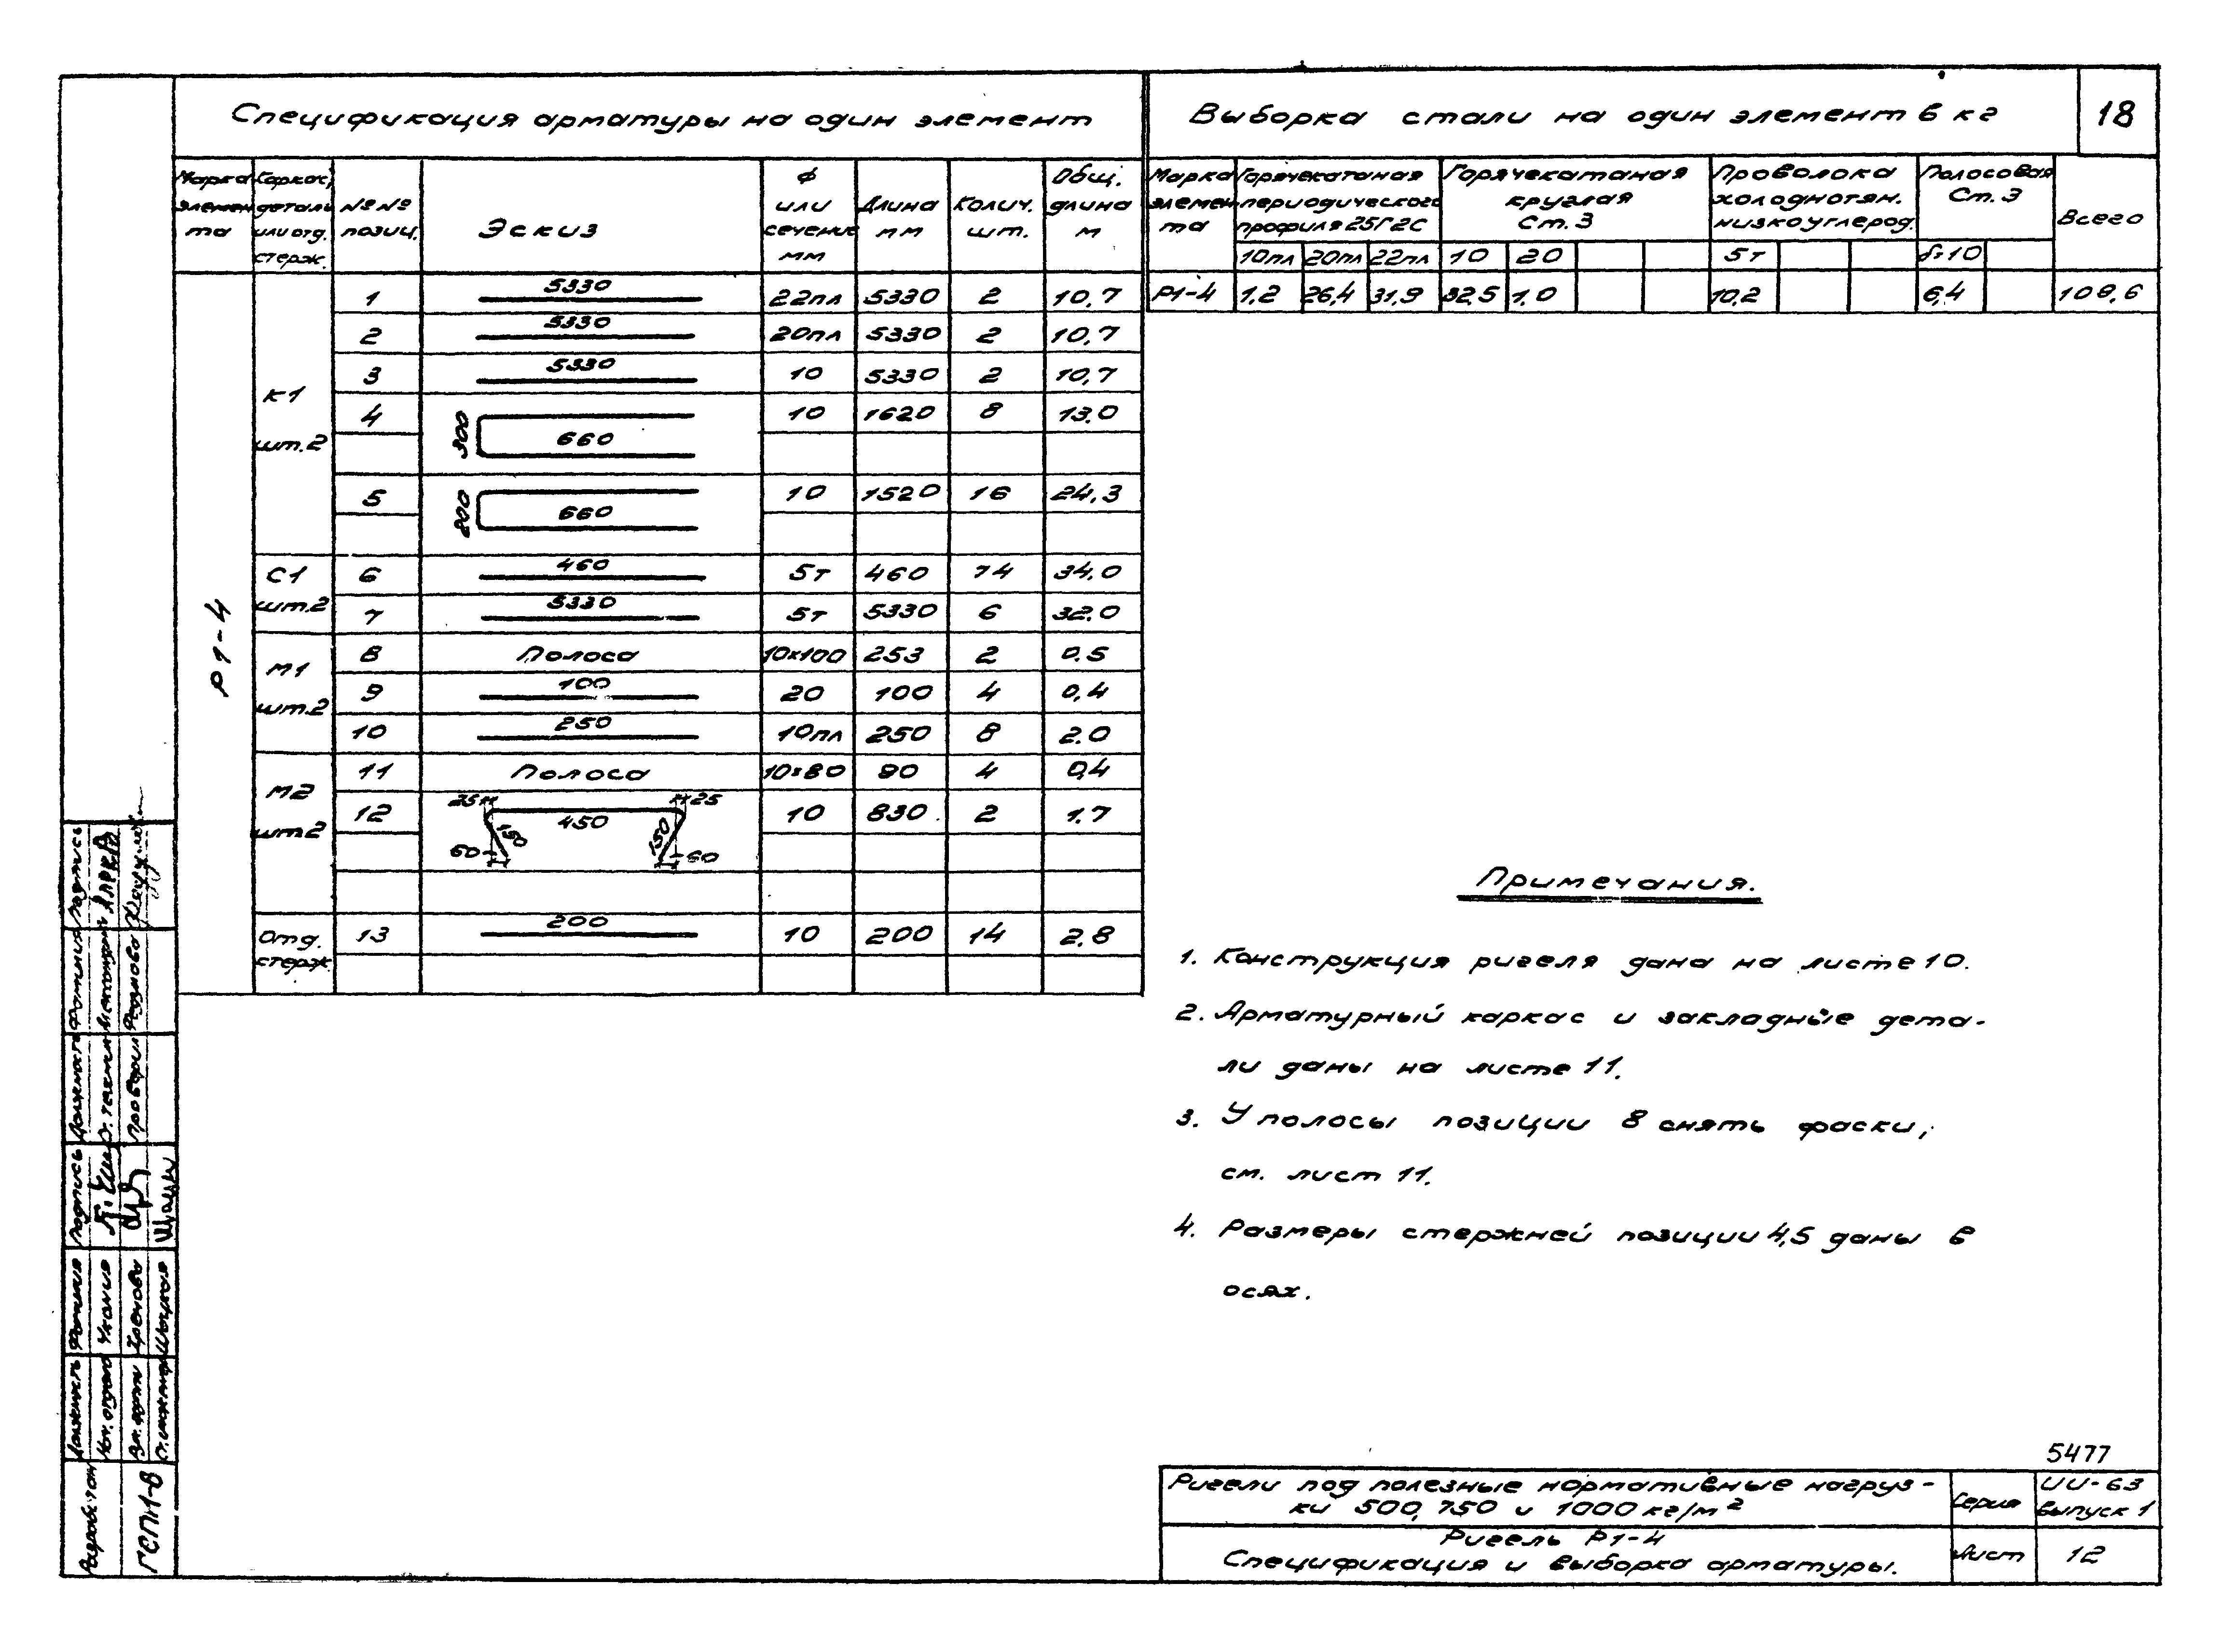 Спецификация арматуры на один элемент
Выборка стали на один элемент в кг
18
Марка элемента
Каркас, деталь или отд. стерж.
№№ позиц.
Эскиз
Ф или сечение мм
Длина мм
Колич. шт.
Общ. длина м
Р1-4
К1 шт.2
1 5330 22пл 5330 2 10,7
2 5330 20пл 5330 2 10,7
3 5330 10 5330 2 10,7
4 300 660 10 1620 8 13.0
5 200 660 10 1520 16 24,3
С1 шт.2
6 460 5т 460 74 34.0
7 5330 5т 5330 6 32.0
М1 шт.2
8 Полоса 10×100 253 2 0.5
9 100 20 100 4 0,4
10 250 10пл 250 8 2.0
М2 шт2
11 Полоса 10×80 90 4 0,4
12 25 25 450 150 150 60 60 10 830 2 1.7
Отд. стерж.
13 200 10 200 14 2.8
Марка элемента
Горячекатаная периодического профиля 25Г2С
Горячекатаная круглая Ст.3
Проволока холоднотян. низкоуглерод.
Полосовая Ст.3
Всего
10пл 20пл 22пл 10 20 5т δ=10
Р1-4 1,2 26,4 31,9 32,5 1.0 10,2 6,4 109,6
Примечания.
1. Конструкция ригеля дана на листе 10.
2. Арматурный каркас и закладные дета-
ли даны на листе 11.
3. У полосы позиции 8 снять фаски,
см. лист 11.
4. Размеры стержней позиции 4,5 даны в
осях.
5477
Ригели под полезные нормативные нагруз-
ки 500, 750 и 1000 кг/м²
Серия
ИИ-63
Выпуск 1
Ригель Р1-4
Спецификация и выборка арматуры.
Лист
12
Должность Фамилия Подпись
Ст. техник
Проверил
Должность Фамилия Подпись
Нач. отдела
Разработан
ГСПИ-8